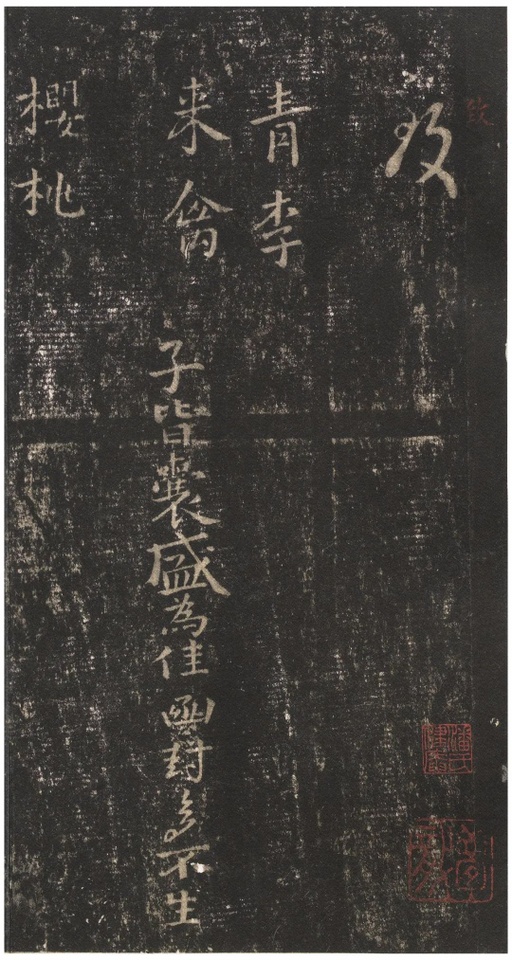 青李
来禽 子皆囊盛為佳函封多不生
櫻桃